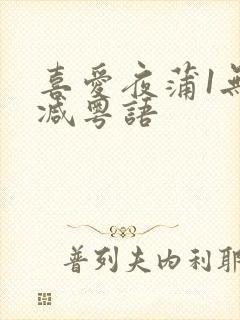 喜愛夜蒲1無
減粵語
普列夫內利耶